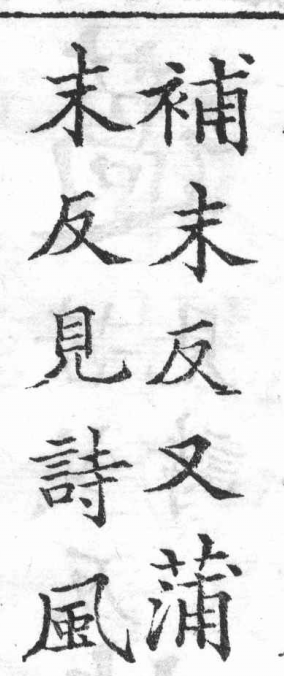 補末反又蒲
末反見詩風